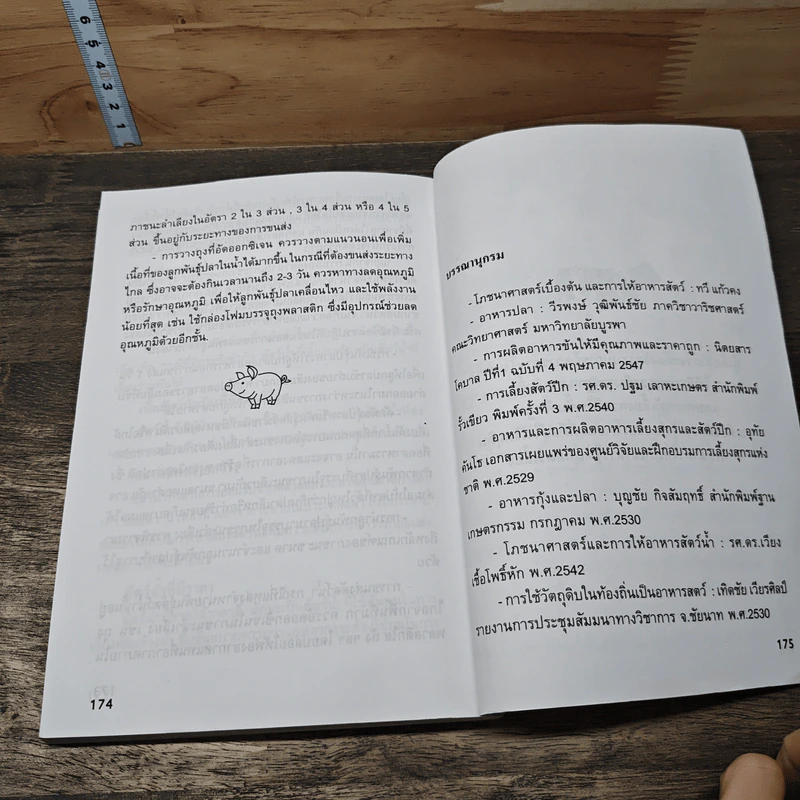 6 5 4 3 2 1
ภาชนะลำเลียงในอัตรา 2 ใน 3 ส่วน , 3 ใน 4 ส่วน หรือ 4 ใน 5
ส่วน ขึ้นอยู่กับระยะทางของการขนส่ง
- การวางถุงที่อัดออกซิเจน ควรวางตามแนวนอนเพื่อเพิ่ม
เนื้อที่ของลูกพันธุ์ปลาในน้ำได้มากขึ้น ในกรณีที่ต้องขนส่งระยะทาง
ไกล ซึ่งอาจจะต้องกินเวลานานถึง 2-3 วัน ควรหาทางลดอุณหภูมิ
หรือรักษาอุณหภูมิ เพื่อให้ลูกพันธุ์ปลาเคลื่อนไหว และใช้พลังงาน
น้อยที่สุด เช่น ใช้กล่องโฟมบรรจุถุงพลาสติก ซึ่งมีอุปกรณ์ช่วยลด
อุณหภูมิด้วยอีกชั้น.
174
บรรณานุกรม
- โภชนาศาสตร์เบื้องต้น และการให้อาหารสัตว์ : ทวี แก้วคง
- อาหารปลา : วีรพงษ์ วุฒิพันธ์ชัย ภาควิชาวาริชศาสตร์
คณะวิทยาศาสตร์ มหาวิทยาลัยบูรพา
- การผลิตอาหารข้นให้มีคุณภาพและราคาถูก : นิตยสาร
โคบาล ปีที่1 ฉบับที่ 4 พฤษภาคม 2547
- การเลี้ยงสัตว์ปีก : รศ.ดร. ปฐม เลาหะเกษตร สำนักพิมพ์
รั้วเขียว พิมพ์ครั้งที่ 3 พ.ศ.2540
- อาหารและการผลิตอาหารเลี้ยงสุกรและสัตว์ปีก : อุทัย
คันโธ เอกสารเผยแพร่ของศูนย์วิจัยและฝึกอบรมการเลี้ยงสุกรแห่ง
ชาติ พ.ศ.2529
- อาหารกุ้งและปลา : บุญชัย กิจสัมฤทธิ์ สำนักพิมพ์ฐาน
เกษตรกรรม กรกฎาคม พ.ศ.2530
- โภชนาศาสตร์และการให้อาหารสัตว์น้ำ : รศ.ดร.เวียง
เชื้อโพธิ์หัก พ.ศ.2542
- การใช้วัตถุดิบในท้องถิ่นเป็นอาหารสัตว์ : เทิดชัย เวียรศิลป์
รายงานการประชุมสัมมนาทางวิชาการ จ.ชัยนาท พ.ศ.2530
175